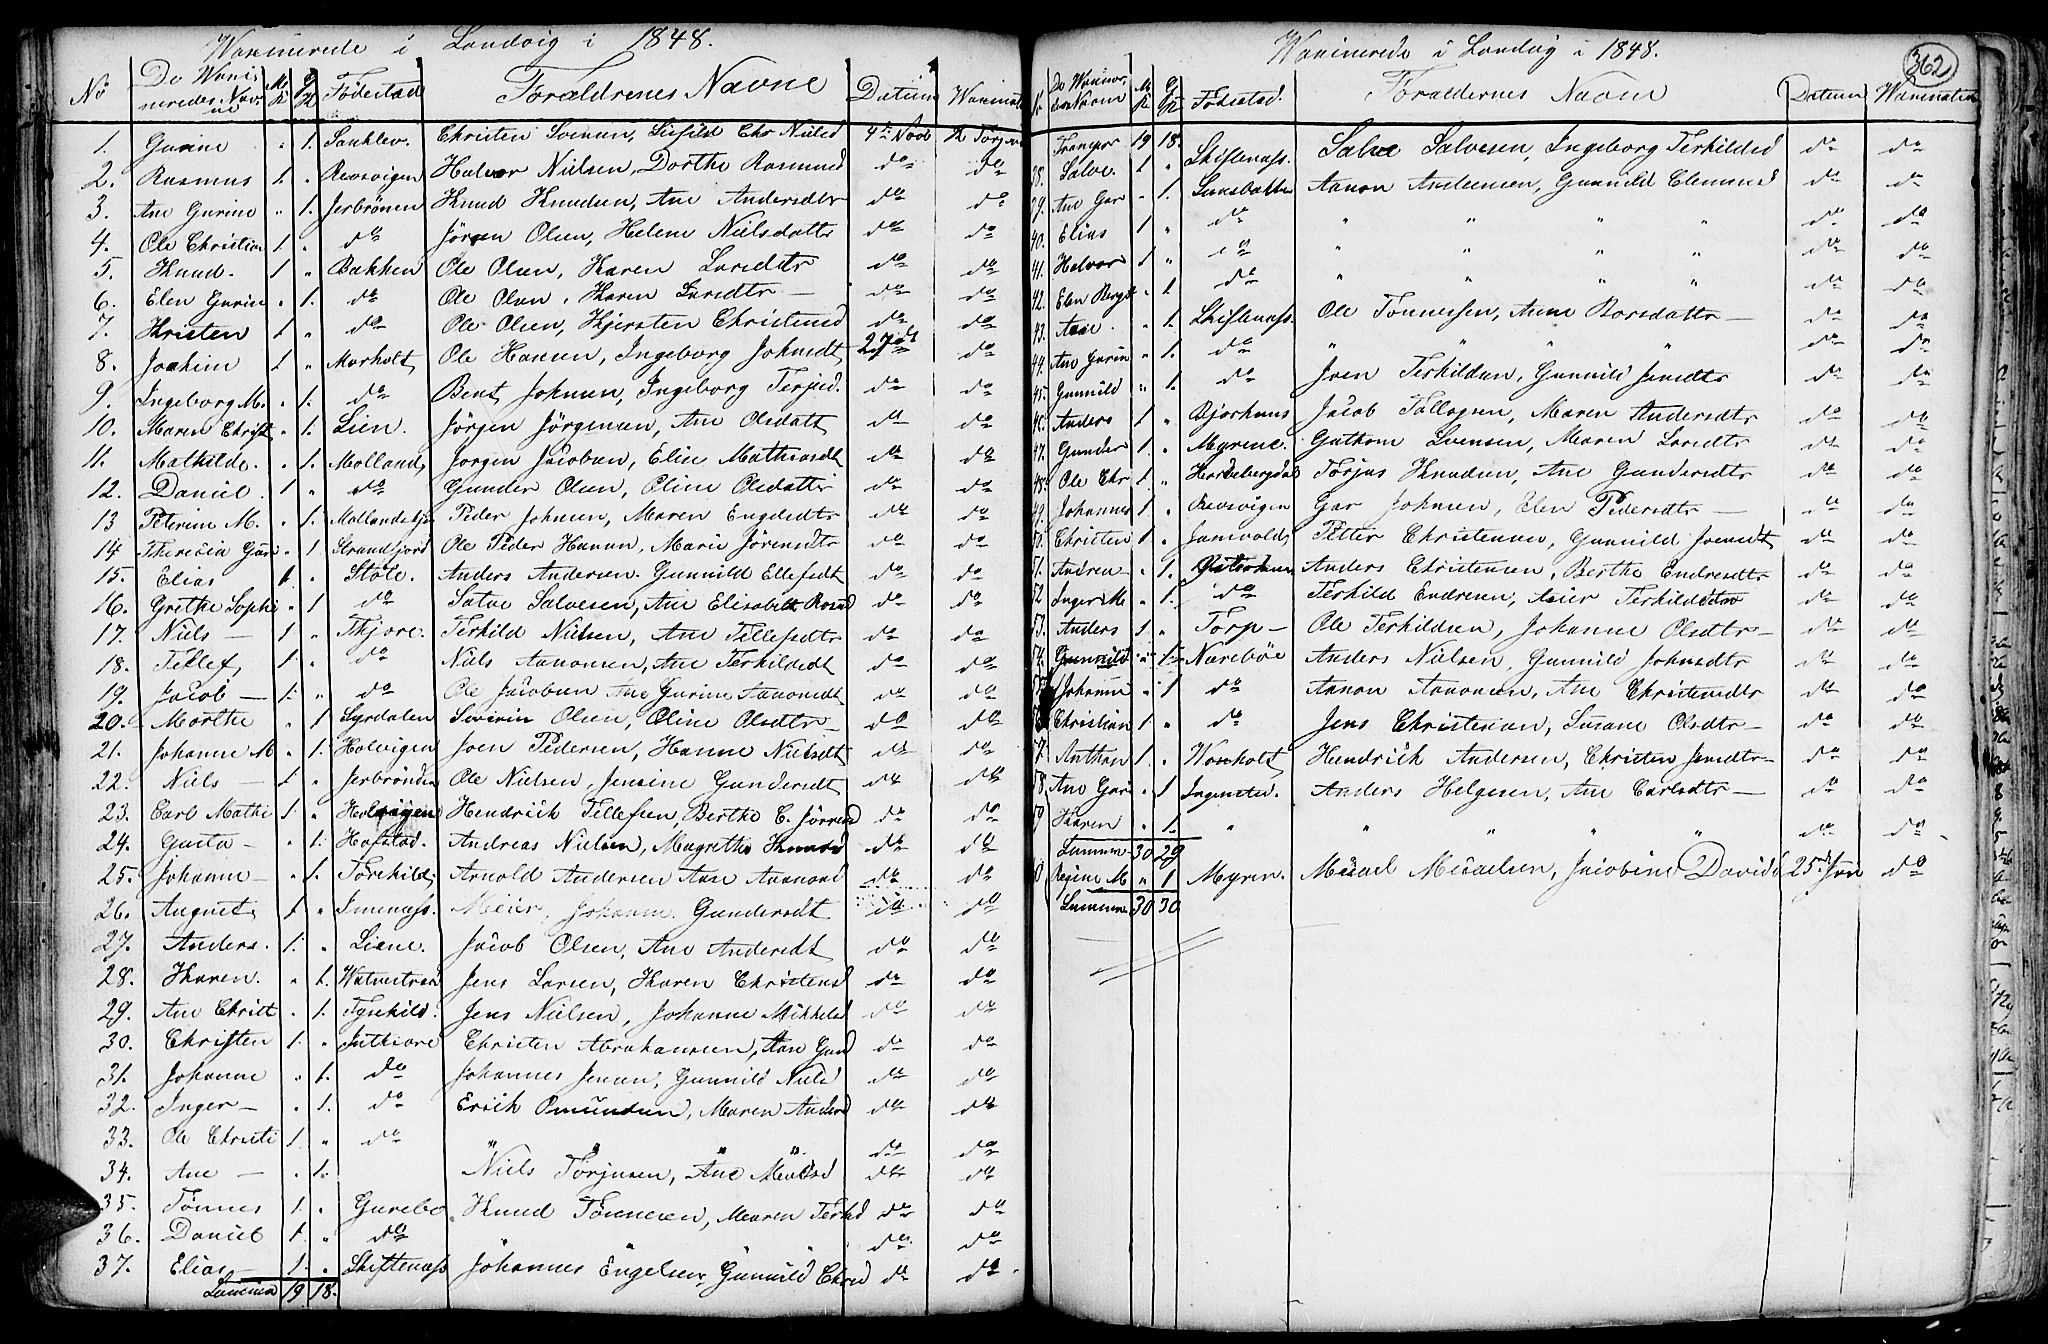 Waxinerede i Landvig i 1848.
No De Waxineredes Navne M.K. Q.K. Fødestæd Forældrenes Navne Datum Waxinator
1. Gurine " 1. Christen Svensen, 4de Novb
2. Rasmus 1. " Revesvigen Halvor Nielsen, Dorthe Rasmusd do do
3. Ane Gurine " 1. Jerbrönen Knud Knudsen, Ane Andersdtr do do
4. Ole Christian 1. " do Jörgen Olsen, Helene Nielsdattr do do
5. Knud. 1 " Bakken Ole Olsen, Karen Larsdtr do do
6. Elen Gurin " 1. do Ole Olsen, Karen Larsdtr — do do
7. Kristen 1 " do Ole Olsen, Kjersten Christensd do do
8. Joakim 1 " Morholt Ole Hansen, Ingeborg Johnsdt 27de do
9. Ingeborg M. " 1. do Bent Johnsen, Ingeborg Terjesd. do do
10. Maren Christ " 1. Lien. Jörgen Jörgensen, Ane Olsdatt do do
11. Mathilde. " 1. Molland Jorgen Jacobsen, Elen Mathiasdt do do
12. Daniel. 1 " do Gunder Olsen, Oline Olsdatter do do
13 Peterine M. " 1. Peder Johnsen, Maren Engelsdtr do do
14 Theresia Gur " 1 Strandfjord Ole Peder Hansen, Marie Jörensdtr do do
15. Elias 1. " Stöle. Anders Andersen. Gunnild Ellefsdt do do
16. Grethe Sophi " 1 do Salve Salvesen, Ane Elisabeth Rosend do do
17. Niels — 1 " Skjore. Terkild Nielsen, Ane Tellefsdtr do do
18. Tellef 1. " do Niels Aanonsen, Ane Terkildsdt do do
19. Jacob — 1. " do Ole Jacobsen Ane Gurine Aanonsdt do do
20. Marthe " 1 Syrdalen Severin Olsen, Oline Olsdtr — do do
21. Johanne M " 1. Holvigen Joen Pedersen, Hanne Nielsdt do do
22. Niels — 1. " Jerbrönden Ole Nielsen, Jensine Gundersdt do do
23. Carl Mathi 1. " Holvigen Hendrich Tellefsen, Berthe C. Jörensd do do
24. Gusta — " 1. Hofstad. Andreas Nielsen, Magrethe Knudsd do do
25. Johanne — " 1. Törekild Arnold Andersen Ane Aanonsd do do
26. August 1 " Imenæss. Meier, Johanne Gundersdt do do
27. Anders. 1. " Liene. Jacob Olsen, Ane Andersdt do do
28. Karen. " 1. Jens Larsen, Karen Christensd do do
29. Ane Christ " 1. Tyrekild. Jens Nielsen, Johanne Mikkelsd do do
30. Christen 1. " Christen Abrahamsen, Ane Gund do do
31. Johanne " 1. do Johannes Jensen, Gunnild Nielsd do do
32. Inger — " 1. do Erich Omundsen, Maren Andersd do do
33. Ole Christi 1. " do " " " " do do
34. Ane — " 1. Niels Törjusen, Ane do do
35. Tönnes 1. " Gurebo Knud Tönnesen, Maren Terkd do do
36. Daniel 1. " do do do
37. Elias — 1. " Skiftenæss Johannes Engelsen, Gunnild Chrsd do do
Summa 19 18.
362
Waxinerede i Landvig i 1848.
No De Waxineredes Navne M.K. Q.K. Födested. Foraldernes Navne Datum Waxinator
Transpor 19 18.
38. Salve. 1 " Skiftenæss. Salve Salvesen, Ingeborg Terkildsd do do
39. Ane Gur " 1. Aanon Andersen, Gunnild Clemensd do do
40. Elias 1 " do " " " " do do
41. Halvor 1. " do " " " " do do
42. Elen Bergit " 1. do " " " " do do
43. Aase. " 1. Skiftenæss. Ole Tönnesen, Anne Borsdattr — do do
44. Ane Gurin " 1. do " " " " do do
45. Gunnild " 1. do Joen Terkildsen, Gunnild Jensdtr do do
46. Anders 1. " Jacob Tallagsen, Maren Andersdtr do do
47. Gunder 1. " Myrene. Guthorm Svensen, Maren Larsdtr do do
48. Ole Chr 1. " Törjus Knudsen, Ane Gundersdtr do do
49. Johannes 1 " Revesvigen Johnsen, Elen Pedersdtr — do do
50. Christen 1. " Petter Christensen, Gunnild Joensdt do do
51. Andrea — " 1. Anders Christensen, Berthe Endresdtr do do
52 Inger M " 1. do Terkild Endresen, Terkildsdtr do do
53. Anders 1. " Torp — Ole Terkildsen, Johanne Olsdtr — do do
54. Gunnild " 1. Næreböe Anders Nielsen, Gunnild Johnsdtr do do
55 Johanne " 1 do Aanon Aanonsen, Ane Christensdtr do do
56 Christian 1. " do Jens Christensen, Susane Olsdtr — do do
57 Anthon 1. " Woxholt Hendrich Andersen, Christen Jensdtr — do do
58. Ane Gur " 1 Ingersted. Anders Helgesen, Ane Carlsdtr — do do
59 Karen " 1. " " " " " do do
Summa 30 29
60 Regine M " 1 Myren. Micael Micaelsen, Jacobine Davids 25de Jun do
Summa 30 30